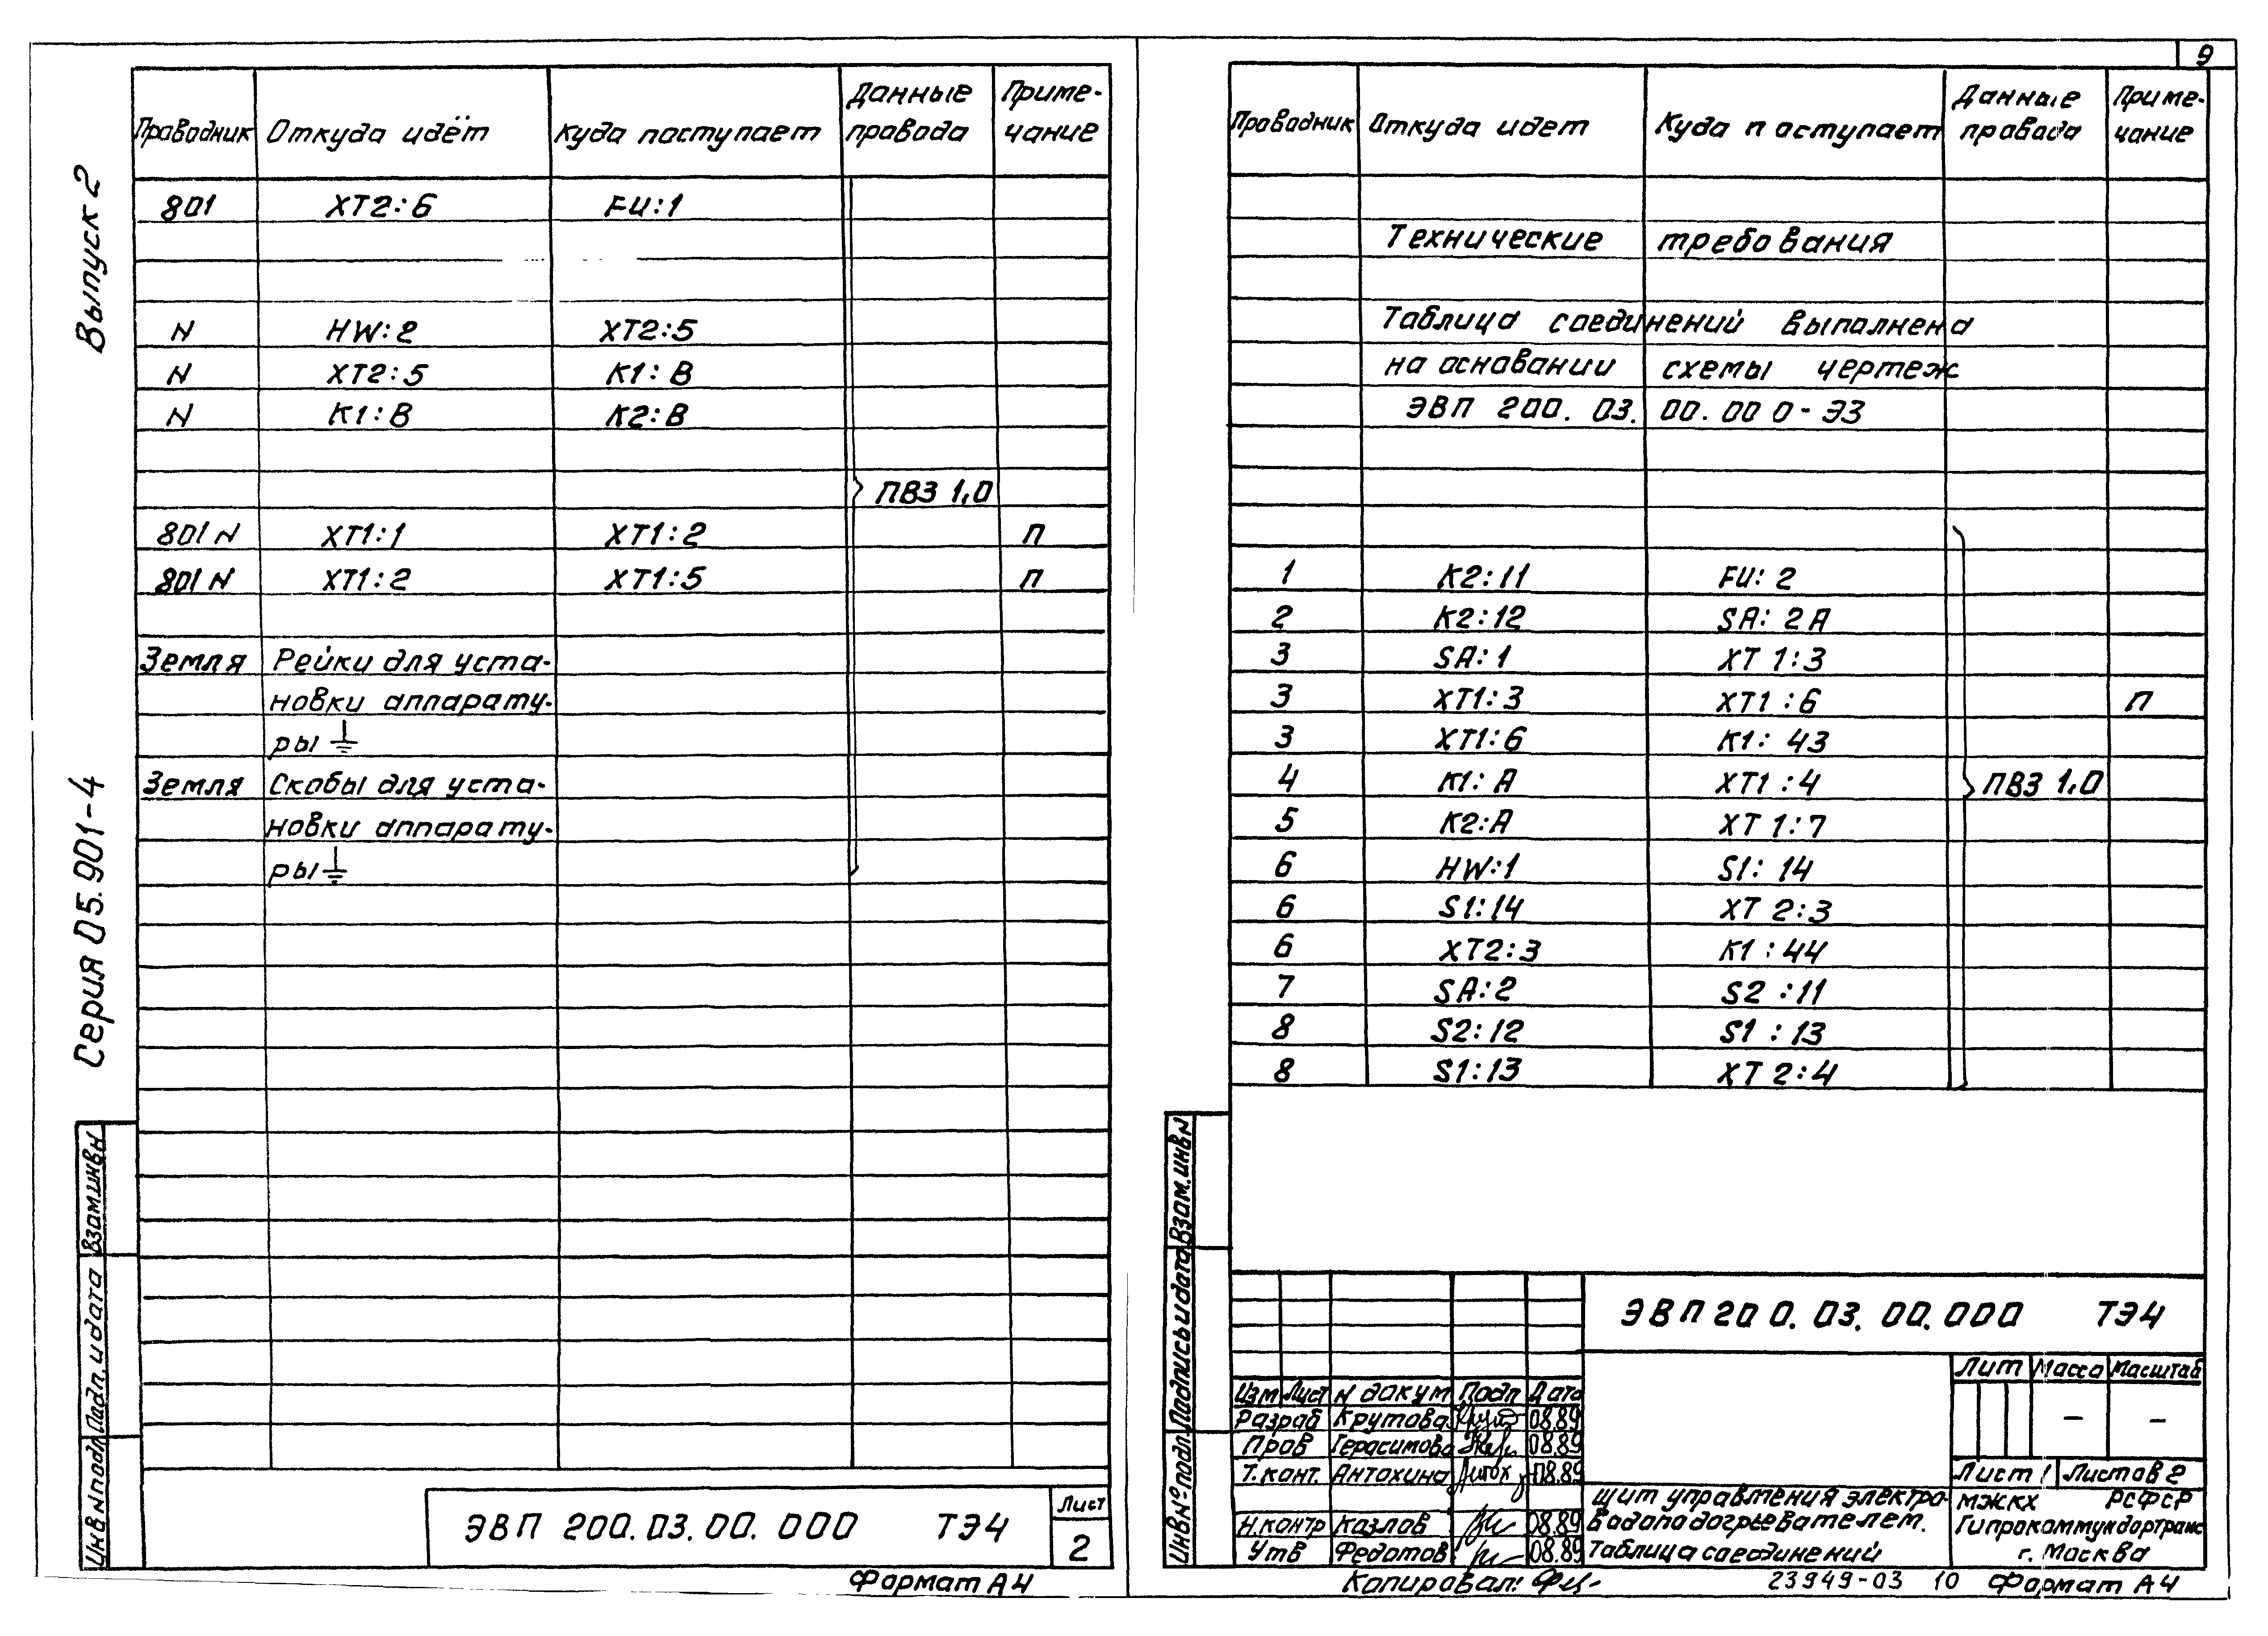 9
Выпуск 2
Серия 05.901-4
Проводник Откуда идёт Куда поступает Данные провода Приме-чание
801 XT2:6 FU:1
N HW:2 XT2:5
N XT2:5 K1:B
N K1:B K2:B
ПВ3 1,0
801 N XT1:1 XT1:2 П
801 N XT1:2 XT1:5 П
Земля Рейки для уста-
новки аппарату-
ры ⏚
Земля Скобы для уста-
новки аппарату-
ры ⏚
Взам.инв N
Подп. и дата
Инв N подл
ЭВП 200.03.00.000 ТЭ4
Лист
2
Формат А4
Проводник Откуда идет Куда поступает Данные провода Приме-чание
Технические требования
Таблица соединений выполнена
на основании схемы чертеж
ЭВП 200.03.00.000-Э3
1 K2:11 FU:2
2 K2:12 SA:2A
3 SA:1 XT1:3
3 XT1:3 XT1:6 П
3 XT1:6 K1:43
4 K1:A XT1:4 ПВ3 1,0
5 K2:A XT1:7
6 HW:1 S1:14
6 S1:14 XT2:3
6 XT2:3 K1:44
7 SA:2 S2:11
8 S2:12 S1:13
8 S1:13 XT2:4
Взам.инв N
Подпись и дата
Инв № подл.
ЭВП 200.03.00.000 ТЭ4
Лит Масса Масштаб
Изм Лист N докум Подп Дата
Разраб Крутова 08.89
Пров Герасимова 08.89
Т.конт. Антохина 08.89
Н.контр Козлов 08.89
Утв Федотов 08.89
– –
Лист 1 Листов 2
Щит управления электро-
водоподогревателем.
Таблица соединений
МЖКХ РСФСР
Гипрокоммундортранс
г. Москва
Копировал:
23949-03 10
Формат А4